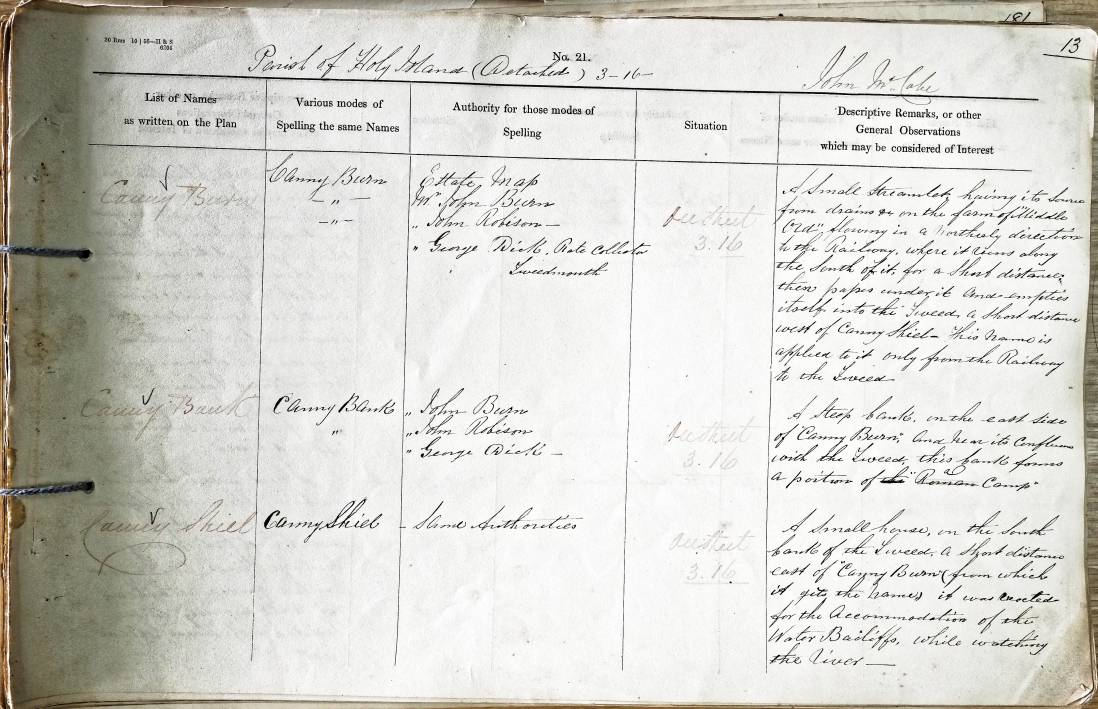 181
13
20 Rms 10 | 56—H & S
6306
No. 21.
Parish of Holy Island (Detached) 3-16-
John McCabe
List of Names
as written on the Plan
Various modes of
Spelling the same Names
Authority for those modes of
Spelling
Situation
Descriptive Remarks, or other
General Observations
which may be considered of Interest
Canny Burn
Canny Burn
- " -
- " -
Estate Map
Mr. John Burn
" John Robison -
" George Dick, Rate Collector
Tweedmouth
See Sheet
3.16
A Small Streamlet, having its Source
from drains &c on the farm of "Middle
Ord" flowing in a Northerly direction
to the Railway, where it runs along
the South of it, for a Short distance,
then passes under it and empties
itself into the Tweed, a Short distance
west of Canny Shiel - This Name is
applied to it only from the Railway
to the Tweed
Canny Bank
Canny Bank
"
" John Burn
" John Robison
" George Dick -
See Sheet
3.16
A Steep bank, on the east side
of "Canny Burn", and near its Confluence
with the Tweed, this bank forms
a portion of the "a Roman Camp"
Canny Shiel
Canny Shiel
- Same Authorities
See Sheet
3.16
A Small house, on the South
bank of the Tweed, a Short distance
east of "Canny Burn" (from which
it gets the Name) it was erected
for the Accommodation of the
Water Bailiffs, while watching
the River -